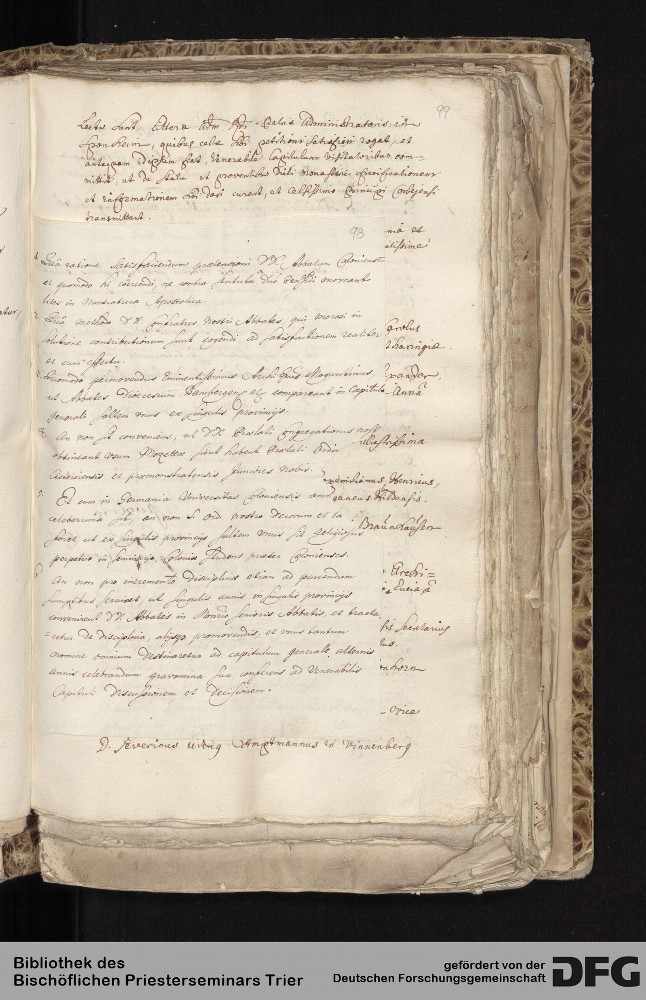 99
Lectae sunt litterae Adm. Rdi Praelati Administratoris in
Sponheim, quibus celse petitioni satisfieri rogat, et
antequam id ipsum fiat, Venerabile Capitulum visitatoribus com-
mittat, ut de statu et proventibus dicti Monasterij specificationem
et informationem dari curent, et Celsissimo Principi Corbejensi
transmittant.
93
1. Qua ratione satisfaciendum praetensioni DD. Abbatum Coloniens.
et quomodo hi coercendi, ne contra statuta moveant
lites in Nuntiatura Apostolica.
2. Qua methodo DD. Confratres nostri Abbates, qui morosi in
solutione contributionum sunt cogendi ad satisfactionem realiter
et cum effectu.
3. Quomodo permovendus Eminentissimus Archi Eps Moguntinus,
ut Abbates Dioecesium Bambergens. etc. compareant in Capitulo
generali saltem unus ex singulis provincijs.
4. An non sit conveniens, ut DD. Praelati Congregationis nostrae
obtineant usum Mozettae sicut habent Praelati Ordinis
Cisterciensis et Praemonstratensis juniores nobis.
5. Et cum in Germania Universitas Coloniensis
celeberrima sit, an non S. Ord. nostro decorum et
foret ut ex singulis provincijs saltem unus sit religiosus
perpetuo in Seminario Coloniae studens praeter Colonienses.
6. An non pro incremento disciplinae etiam ad parcendum
sumptibus serviret, ut singulis annis in singulis provincijs
convenirent DD. Abbates in Monrio senioris Abbatis, et tracta-
retur de disciplina, alijsque promovendis, et unus tantum
nomine omnium destinaretur ad capitulum generale alternis
annis celebrandum gravamina sua conferens ad Venerabilis
Capituli discussionem et decisionem.
D. Severinus Amptmannus in Vinnenberg
ma et
alissime
arolus
tharingiae.
Anna
illustrissima
Henricus,
Hildensis.
Braunshausen
Secretarius
tus.
vice
Bibliothek des
Bischöflichen Priesterseminars Trier
gefördert von der
Deutschen Forschungsgemeinschaft
DFG